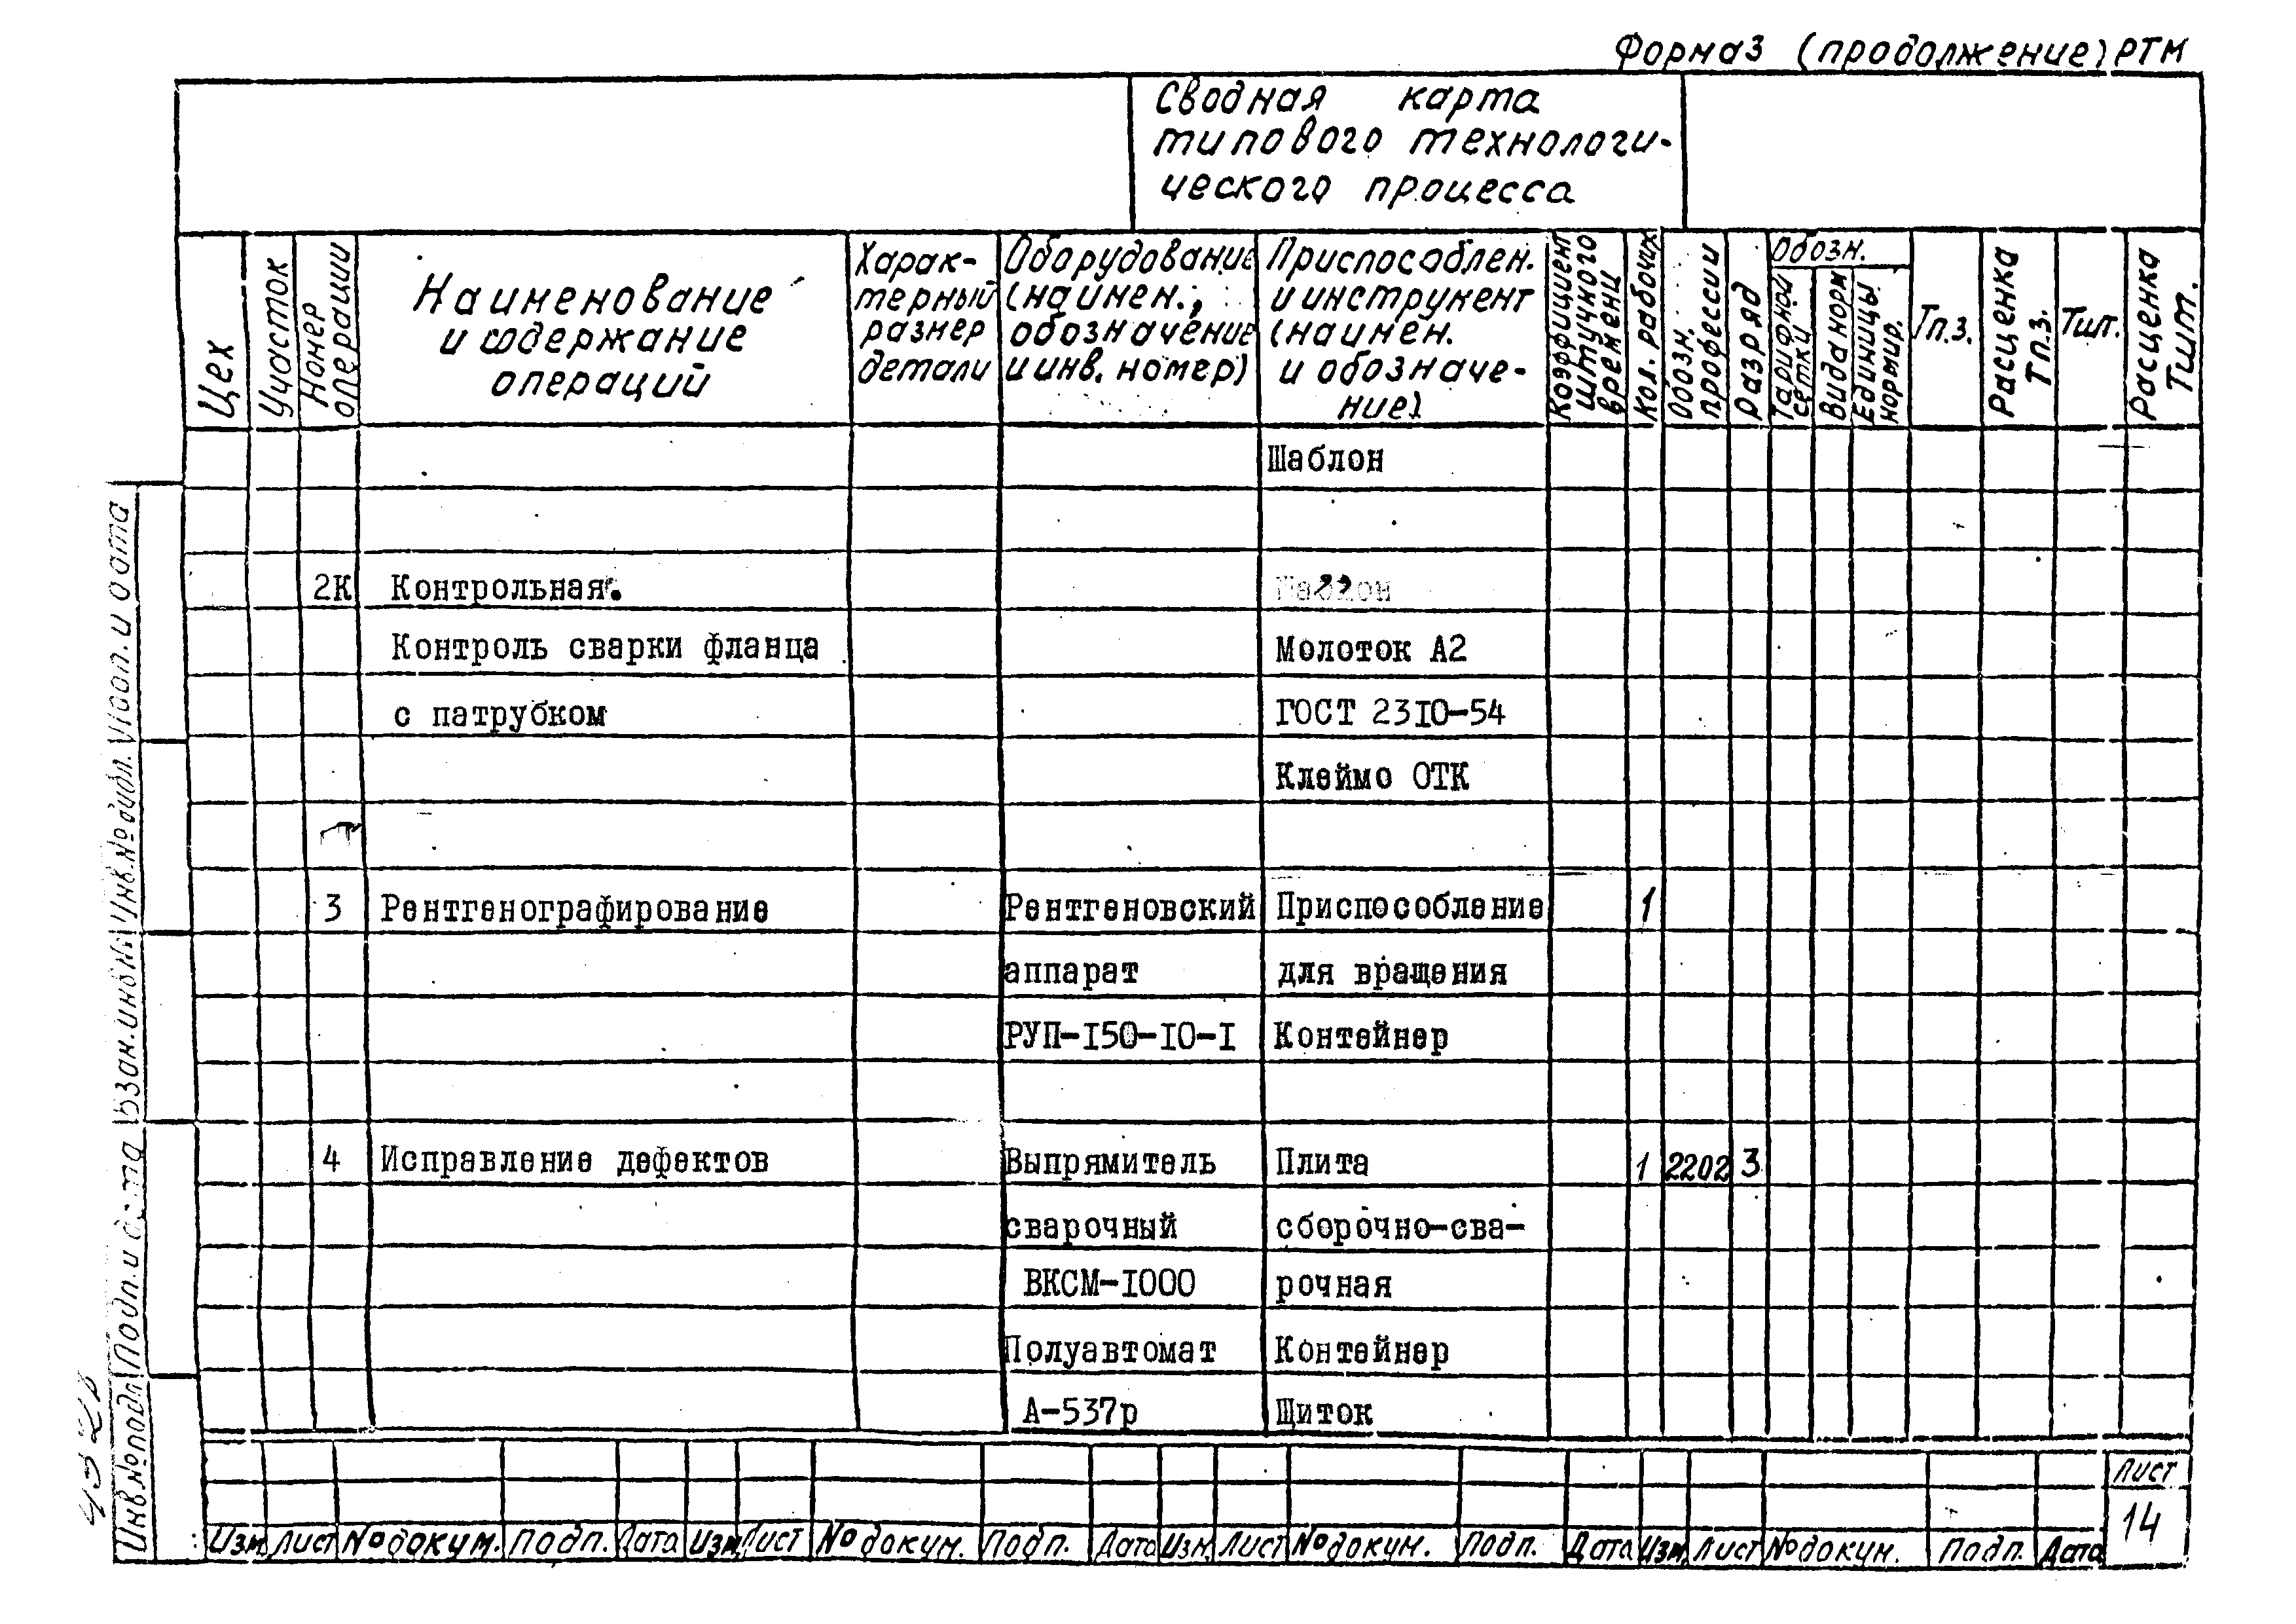 Форма3 (продолжение) РТМ
Сводная карта
типового технологи-
ческого процесса
Цех
Участок
Номер операции
Наименование
и содержание
операций
Харак-
терный
размер
детали
Оборудование
(наимен.,
обозначение
и инв. номер)
Приспособлен.
и инструмент
(наимен.
и обозначе-
ние)
Коэффициент штучного времени
Кол. рабочих
Обозн. профессии
Разряд
Обозн.
Тарифной сетки
Вида норм
Единицы нормир.
Тп.з.
Расценка Тп.з.
Тшт.
Расценка Тшт.
Шаблон
2К Контрольная.
Контроль сварки фланца Молоток А2
с патрубком ГОСТ 2310-54
Клеймо ОТК
3 Рентгенографирование Рентгеновский Приспособление 1
аппарат для вращения
РУП-150-10-1 Контейнер
4 Исправление дефектов Выпрямитель Плита 1 2202 3
сварочный сборочно-сва-
ВКСМ-1000 рочная
Полуавтомат Контейнер
А-537р Щиток
Инв.№подл Подп. и дата Взам.инв№ Инв.№дубл. Подп. и дата
Лист
14
Изм Лист №докум. Подп. Дата Изм Лист №докум. Подп. Дата Изм. Лист №докум. Подп. Дата Изм Лист №докум. Подп. Дата